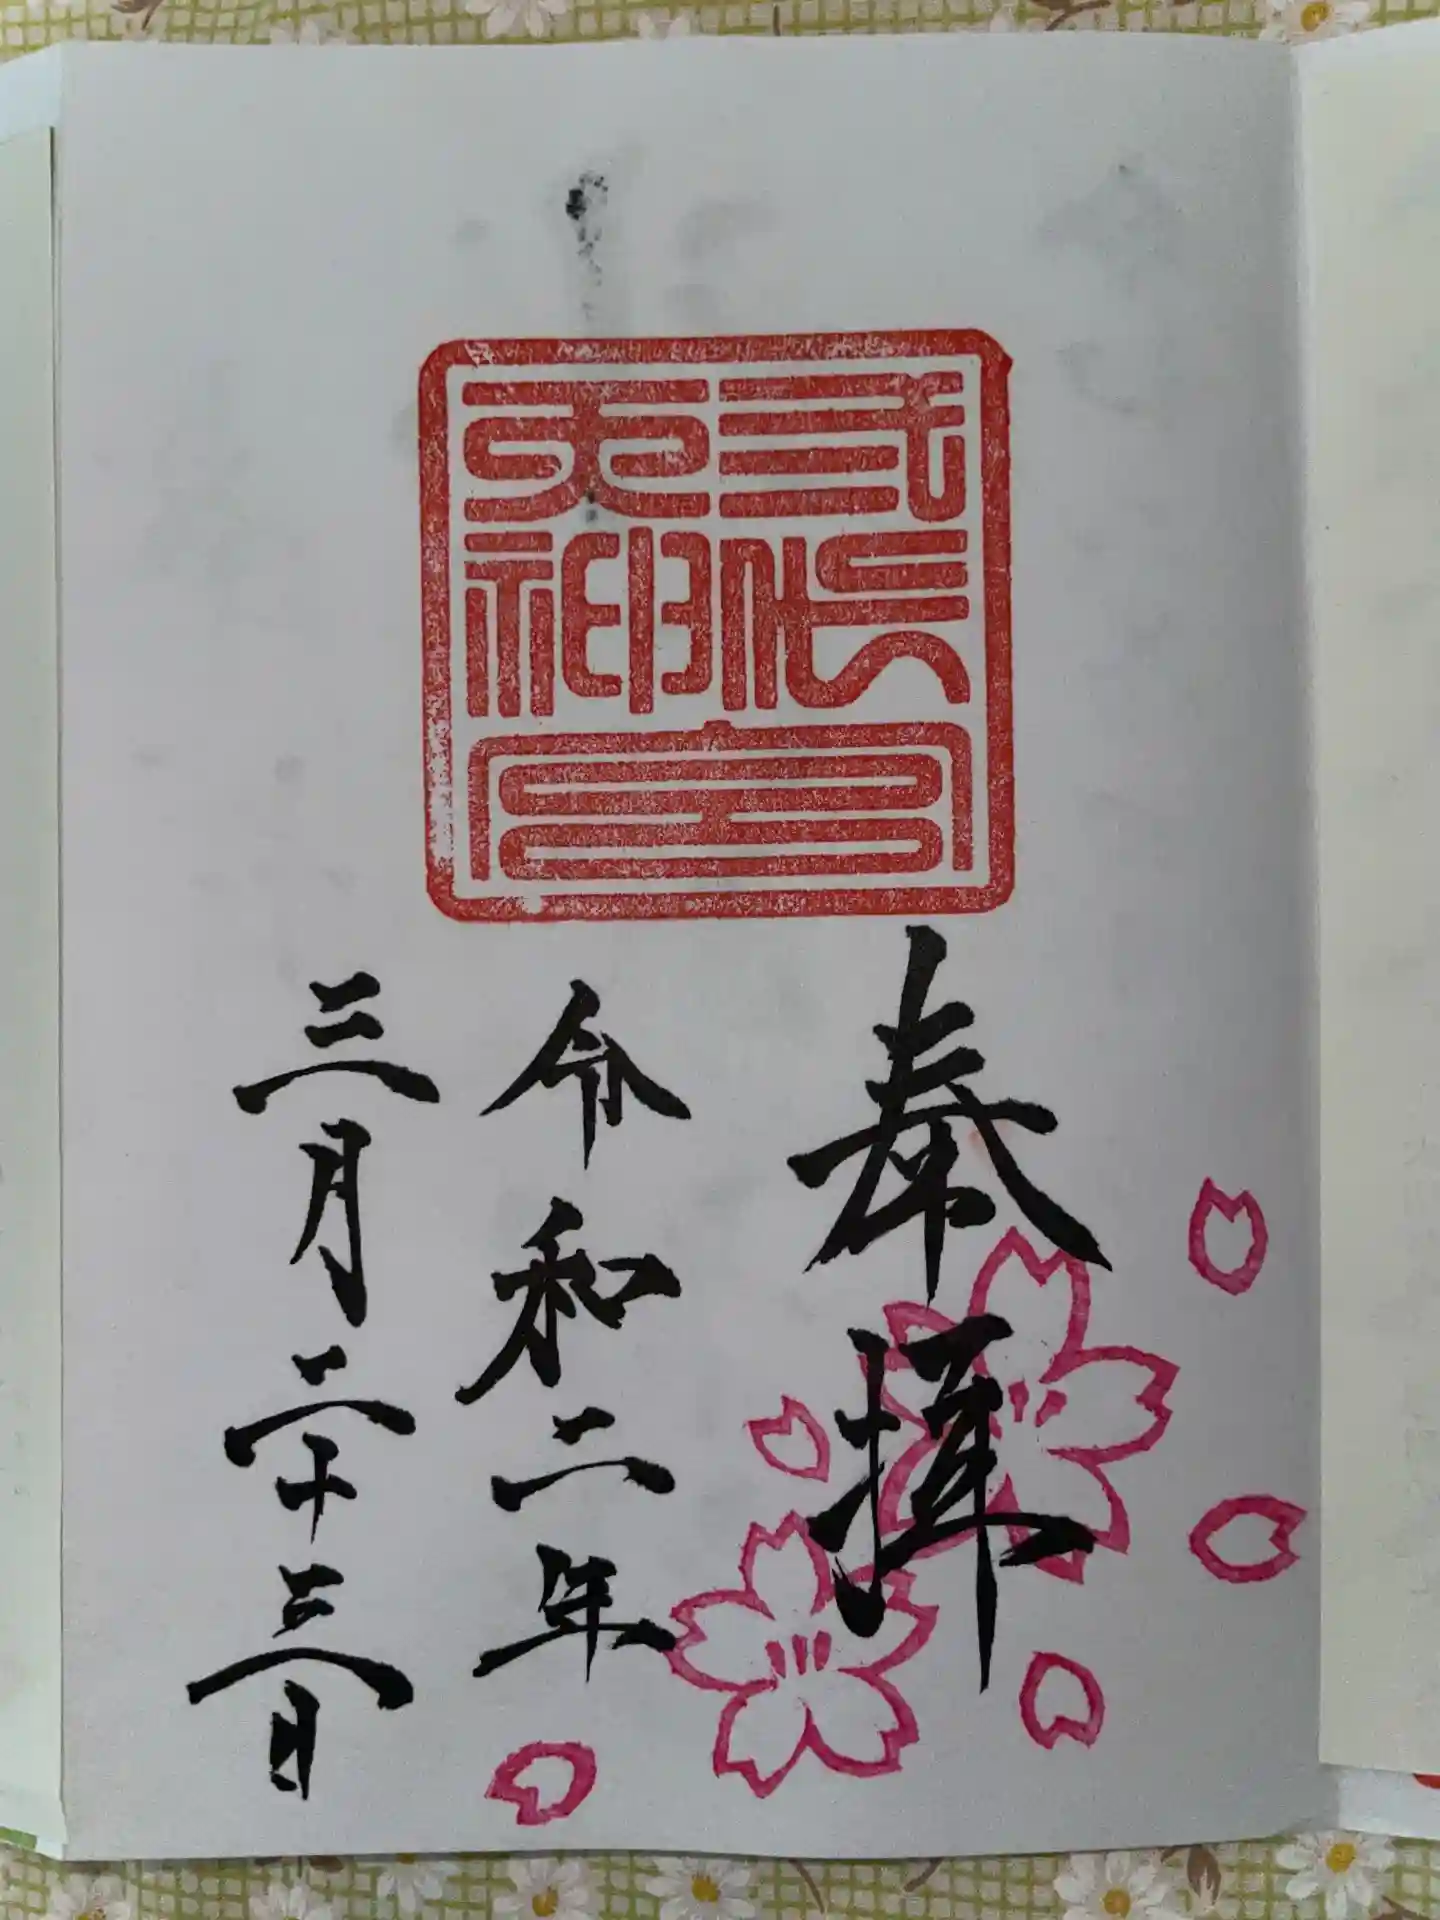 天神
宮
奉拝
令和二年
三月二十三日